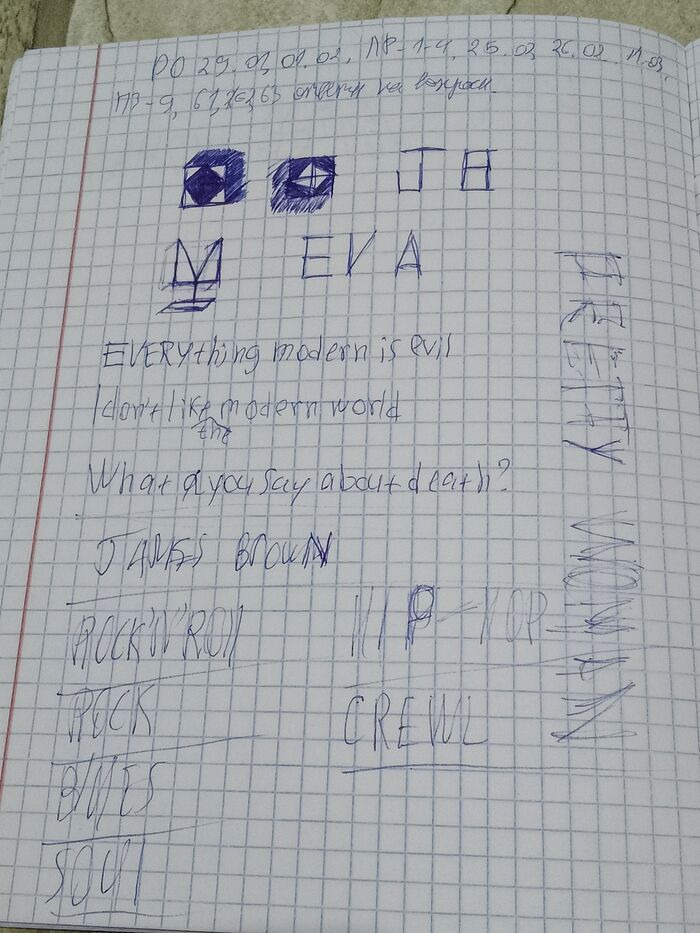 РО 29.01, 01.02, ПР-1-4, 25.02 26.02
ПЗ-9, ответы на вопросы.
J A
EVA
EVERYthing modern is evil
I don't like modern world
the
What d you say about death?
JAMES BROWN
ROCK'N'ROll
HIP-HOP
ROCK
CREWL
BlUES
SOUl
PRETTY WOMAN